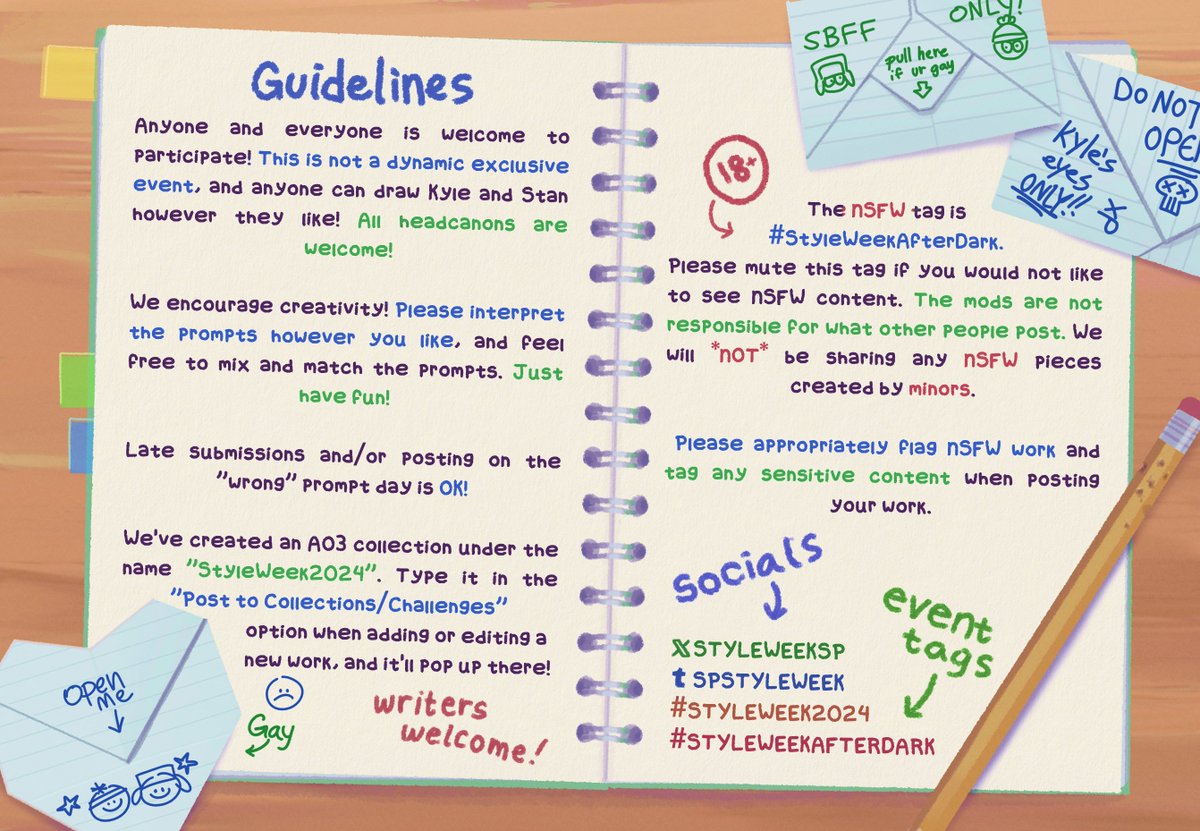 Guidelines
Anyone and everyone is welcome to
participate! This is not a dynamic exclusive
event, and anyone can draw Kyle and Stan
however they like! All headcanons are
welcome!
We encourage creativity! Please interpret
the prompts however you like, and feel
free to mix and match the prompts. Just
have fun!
Late submissions and/or posting on the
"wrong" prompt day is OK!
We've created an AO3 collection under the
name "StyleWeek2024". Type it in the
"Post to Collections/Challenges"
option when adding or editing a
new work, and it'll pop up there!
writers
welcome!
Gay
Open
me
SBFF
ONLY!
pull here
if ur gay
DO NOT
OPEN
Kyle's
eyes
ONLY!!!
18+
The NSFW tag is
#StyleWeekAfterDark.
Please mute this tag if you would not like
to see NSFW content. The mods are not
responsible for what other people post. We
will *NOT* be sharing any NSFW pieces
created by minors.
Please appropriately flag NSFW work and
tag any sensitive content when posting
your work.
socials
event
tags
X STYLEWEEKSP
t SPSTYLEWEEK
#STYLEWEEK2024
#STYLEWEEKAFTERDARK